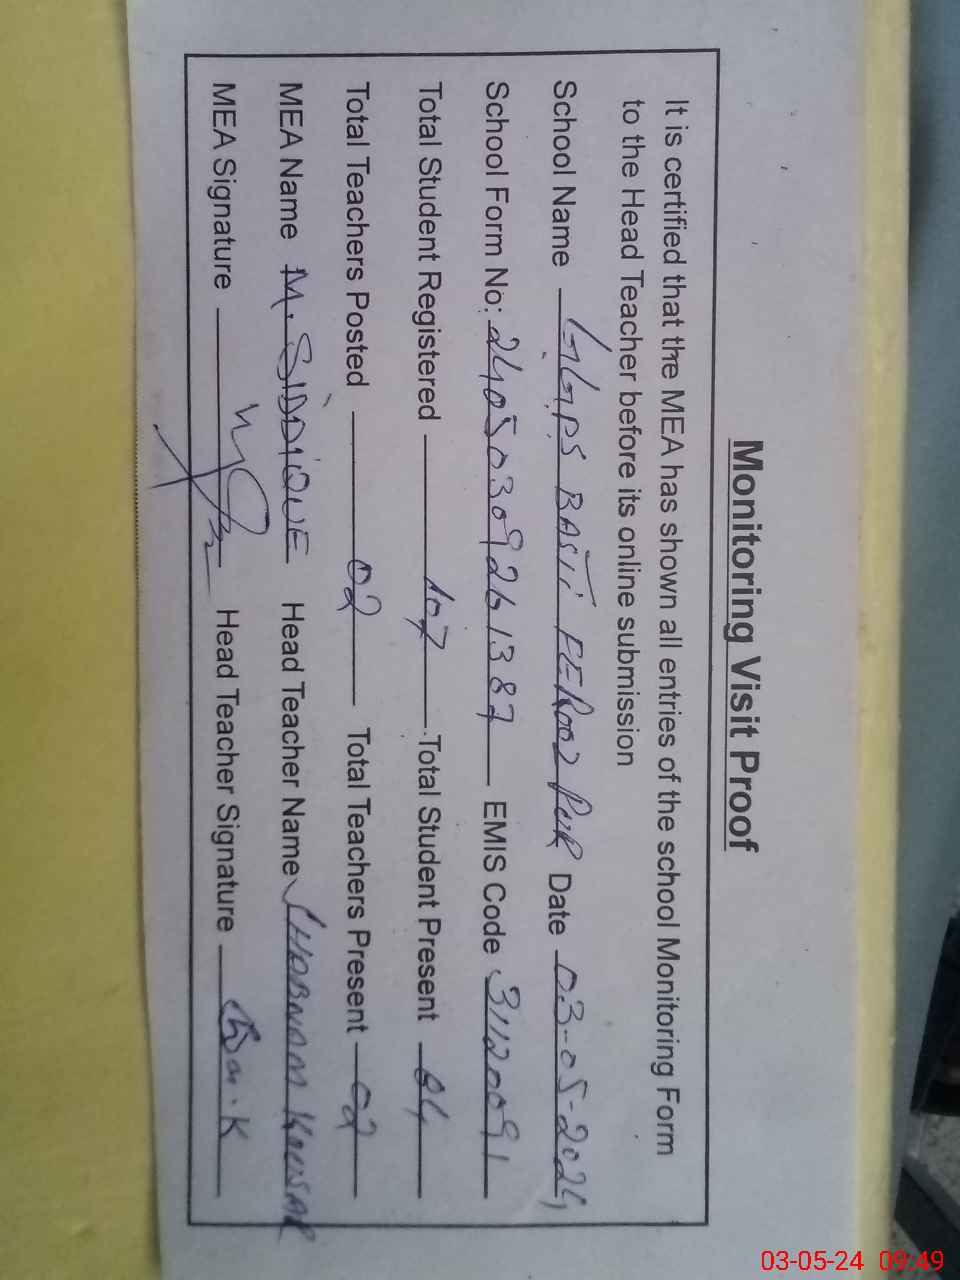 Monitoring Visit Proof
It is certified that the MEA has shown all entries of the school Monitoring Form
to the Head Teacher before its online submission
School Name GGPS BASTI FEROOZ PUR Date 03-05-2024
School Form No: 24050309261387 EMIS Code 31120091
Total Student Registered 107 Total Student Present 84
Total Teachers Posted 02 Total Teachers Present 02
MEA Name M. SIDDIQUE Head Teacher Name SHABNAM KOUSAR
MEA Signature Head Teacher Signature
03-05-24 09:49